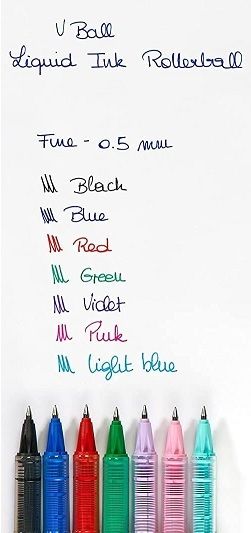 V Ball
Liquid Ink Rollerball
Fine - 0.5 mm
Black
Blue
Red
Green
Violet
Pink
light blue